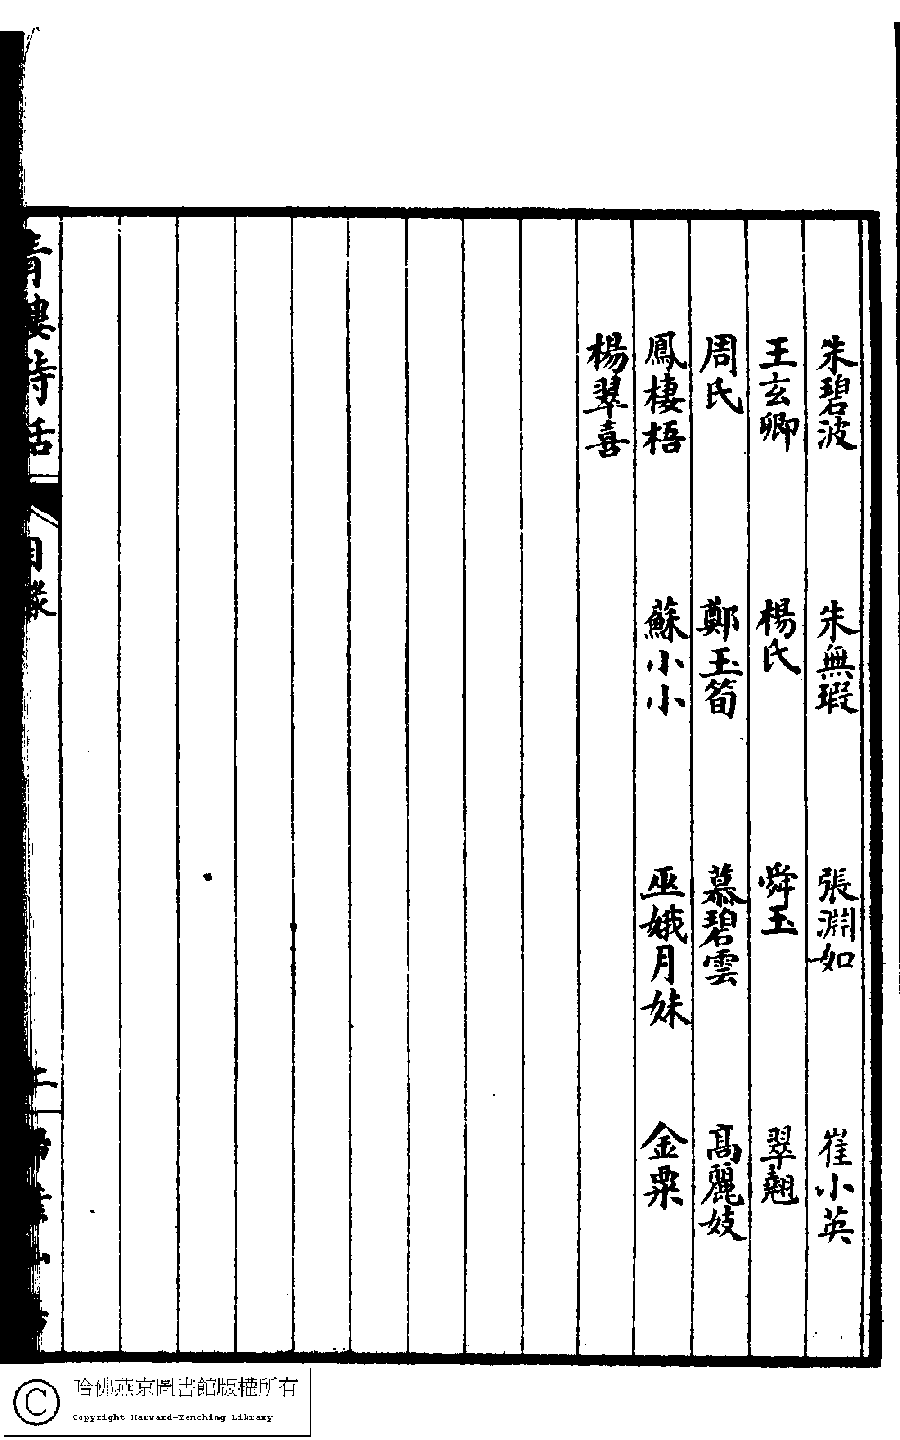 朱碧波 朱無瑕 張淵如 崔小英
王玄卿 楊氏 舜玉 翠翹
周氏 鄭玉筍 慕碧雲 高麗妓
鳳棲梧 蘇小小 巫娥月妹 金粟
楊翠喜
青樓詩話 目錄 二
哈佛燕京圖書館版權所有
Copyright Harvard-Yenching Library